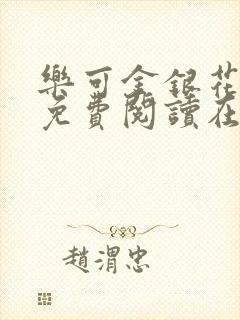 樂可金銀花
免費閱讀在
趙渭忠